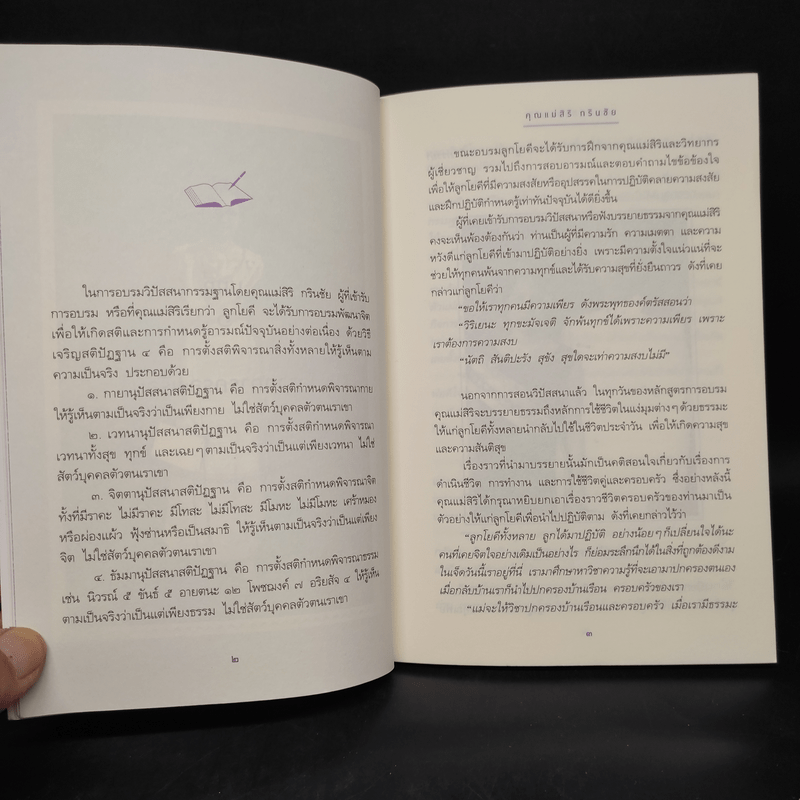 ในการอบรมวิปัสสนากรรมฐานโดยคุณแม่สิริ กรินชัย ผู้ที่เข้ารับ
การอบรม หรือที่คุณแม่สิริเรียกว่า ลูกโยคี จะได้รับการอบรมพัฒนาจิต
เพื่อให้เกิดสติและการกำหนดรู้อารมณ์ปัจจุบันอย่างต่อเนื่อง ด้วยวิธี
เจริญสติปัฏฐาน ๔ คือ การตั้งสติพิจารณาสิ่งทั้งหลายให้รู้เห็นตาม
ความเป็นจริง ประกอบด้วย
๑. กายานุปัสสนาสติปัฏฐาน คือ การตั้งสติกำหนดพิจารณากาย
ให้รู้เห็นตามเป็นจริงว่าเป็นเพียงกาย ไม่ใช่สัตว์บุคคลตัวตนเราเขา
๒. เวทนานุปัสสนาสติปัฏฐาน คือ การตั้งสติกำหนดพิจารณา
เวทนาทั้งสุข ทุกข์ และเฉยๆ ตามเป็นจริงว่าเป็นแต่เพียงเวทนา ไม่ใช่
สัตว์บุคคลตัวตนเราเขา
๓. จิตตานุปัสสนาสติปัฏฐาน คือ การตั้งสติกำหนดพิจารณาจิต
ทั้งที่มีราคะ ไม่มีราคะ มีโทสะ ไม่มีโทสะ มีโมหะ ไม่มีโมหะ เศร้าหมอง
หรือผ่องแผ้ว ฟุ้งซ่านหรือเป็นสมาธิ ให้รู้เห็นตามเป็นจริงว่าเป็นแต่เพียง
จิต ไม่ใช่สัตว์บุคคลตัวตนเราเขา
๔. ธัมมานุปัสสนาสติปัฏฐาน คือ การตั้งสติกำหนดพิจารณาธรรม
เช่น นิวรณ์ ๕ ขันธ์ ๕ อายตนะ ๑๒ โพชฌงค์ ๗ อริยสัจ ๔ ให้รู้เห็น
ตามเป็นจริงว่าเป็นแต่เพียงธรรม ไม่ใช่สัตว์บุคคลตัวตนเราเขา
๒
คุณแม่สิริ กรินชัย
ขณะอบรมลูกโยคีจะได้รับการฝึกจากคุณแม่สิริและวิทยากร
ผู้เชี่ยวชาญ รวมไปถึงการสอบอารมณ์และตอบคำถามไขข้อข้องใจ
เพื่อให้ลูกโยคีที่มีความสงสัยหรืออุปสรรคในการปฏิบัติคลายความสงสัย
และฝึกปฏิบัติกำหนดรู้เท่าทันปัจจุบันได้ดียิ่งขึ้น
ผู้ที่เคยเข้ารับการอบรมวิปัสสนาหรือฟังบรรยายธรรมจากคุณแม่สิริ
คงจะเห็นพ้องต้องกันว่า ท่านเป็นผู้ที่มีความรัก ความเมตตา และความ
หวังดีแก่ลูกโยคีที่เข้ามาปฏิบัติอย่างยิ่ง เพราะมีความตั้งใจแน่วแน่ที่จะ
ช่วยให้ทุกคนพ้นจากความทุกข์และได้รับความสุขที่ยั่งยืนถาวร ดังที่เคย
กล่าวแก่ลูกโยคีว่า
“ขอให้เราทุกคนมีความเพียร ดังพระพุทธองค์ตรัสสอนว่า
“วิริเยนะ ทุกขะมัจเจติ จักพ้นทุกข์ได้เพราะความเพียร เพราะ
เราต้องการความสงบ
“นัตถิ สันติปะรัง สุขัง สุขใดจะเท่าความสงบไม่มี”
นอกจากการสอนวิปัสสนาแล้ว ในทุกวันของหลักสูตรการอบรม
คุณแม่สิริจะบรรยายธรรมถึงหลักการใช้ชีวิตในแง่มุมต่างๆ ด้วยธรรมะ
ให้แก่ลูกโยคีทั้งหลายนำกลับไปใช้ในชีวิตประจำวัน เพื่อให้เกิดความสุข
และความสันติสุข
เรื่องราวที่นำมาบรรยายนั้นมักเป็นคติสอนใจเกี่ยวกับเรื่องการ
ดำเนินชีวิต การทำงาน และการใช้ชีวิตคู่และครอบครัว ซึ่งอย่างหลังนี้
คุณแม่สิริได้กรุณาหยิบยกเอาเรื่องราวชีวิตครอบครัวของท่านมาเป็น
ตัวอย่างให้แก่ลูกโยคีเพื่อนำไปปฏิบัติตาม ดังที่เคยกล่าวไว้ว่า
“ลูกโยคีทั้งหลาย ลูกได้มาปฏิบัติ อย่างน้อยๆ ก็เปลี่ยนใจได้นะ
คนที่เคยจิตใจอย่างเดิมเป็นอย่างไร ก็ย่อมระลึกนึกได้ในสิ่งที่ถูกต้องดีงาม
ในเจ็ดวันนี้เราอยู่ที่นี่ เรามาศึกษาหาวิชาความรู้ที่จะเอามาปกครองตนเอง
เมื่อกลับบ้านเราก็นำไปปกครองบ้านเรือน ครอบครัวของเรา
“แม่จะให้วิชาปกครองบ้านเรือนและครอบครัว เมื่อเรามีธรรมะ
๓